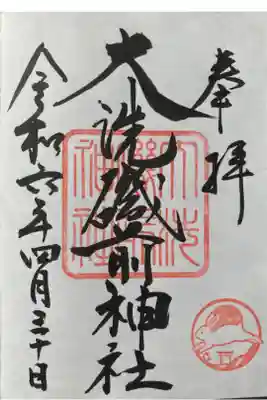 奉拝
大洗磯前神社
令和六年四月三十日